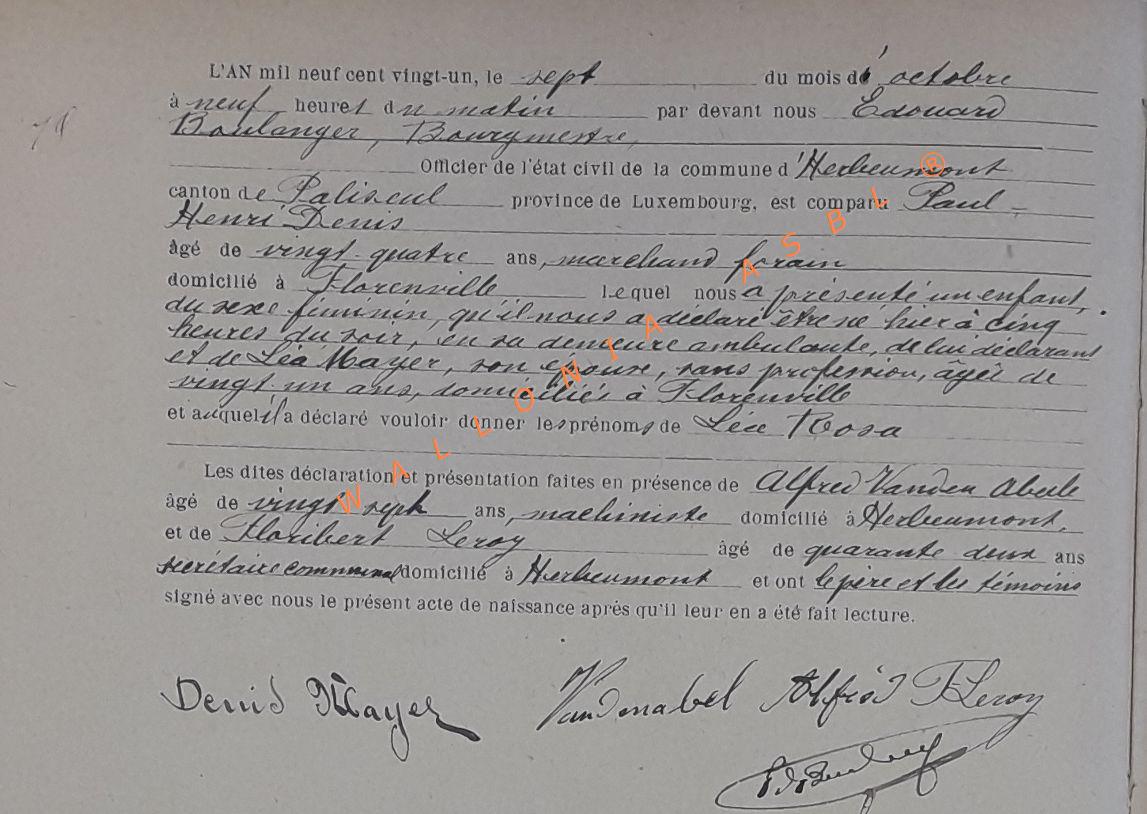 L'AN mil neuf cent vingt-un, le sept du mois d' octobre
à neuf heures du matin par devant nous Edouard
Boulanger, Bourgmestre,
Officier de l'état civil de la commune d'Herbeumont
canton de Paliseul province de Luxembourg, est comparu Paul
Henri Denis
âgé de vingt-quatre ans, marchand forain
domicilié à Florenville lequel nous a présenté un enfant,
du sexe féminin, qu'il nous a déclaré être né hier à cinq
heures du soir, en sa demeure ambulante, de lui déclarant
et de Léa Mayer, son épouse, sans profession, âgée de
vingt-un ans, domiciliés à Florenville
et auquel il a déclaré vouloir donner les prénoms de Léa Rosa
Les dites déclaration et présentation faites en présence de Alfred Vanden Abeele
âgé de vingt sept ans, machiniste domicilié à Herbeumont,
et de Floribert Leroy âgé de quarante deux ans
secrétaire communal domicilié à Herbeumont et ont le père et les témoins
signé avec nous le présent acte de naissance après qu'il leur en a été fait lecture.
Denis Mayer Vandenabel Alfred FLeroy
WALLONIA ASBL ®